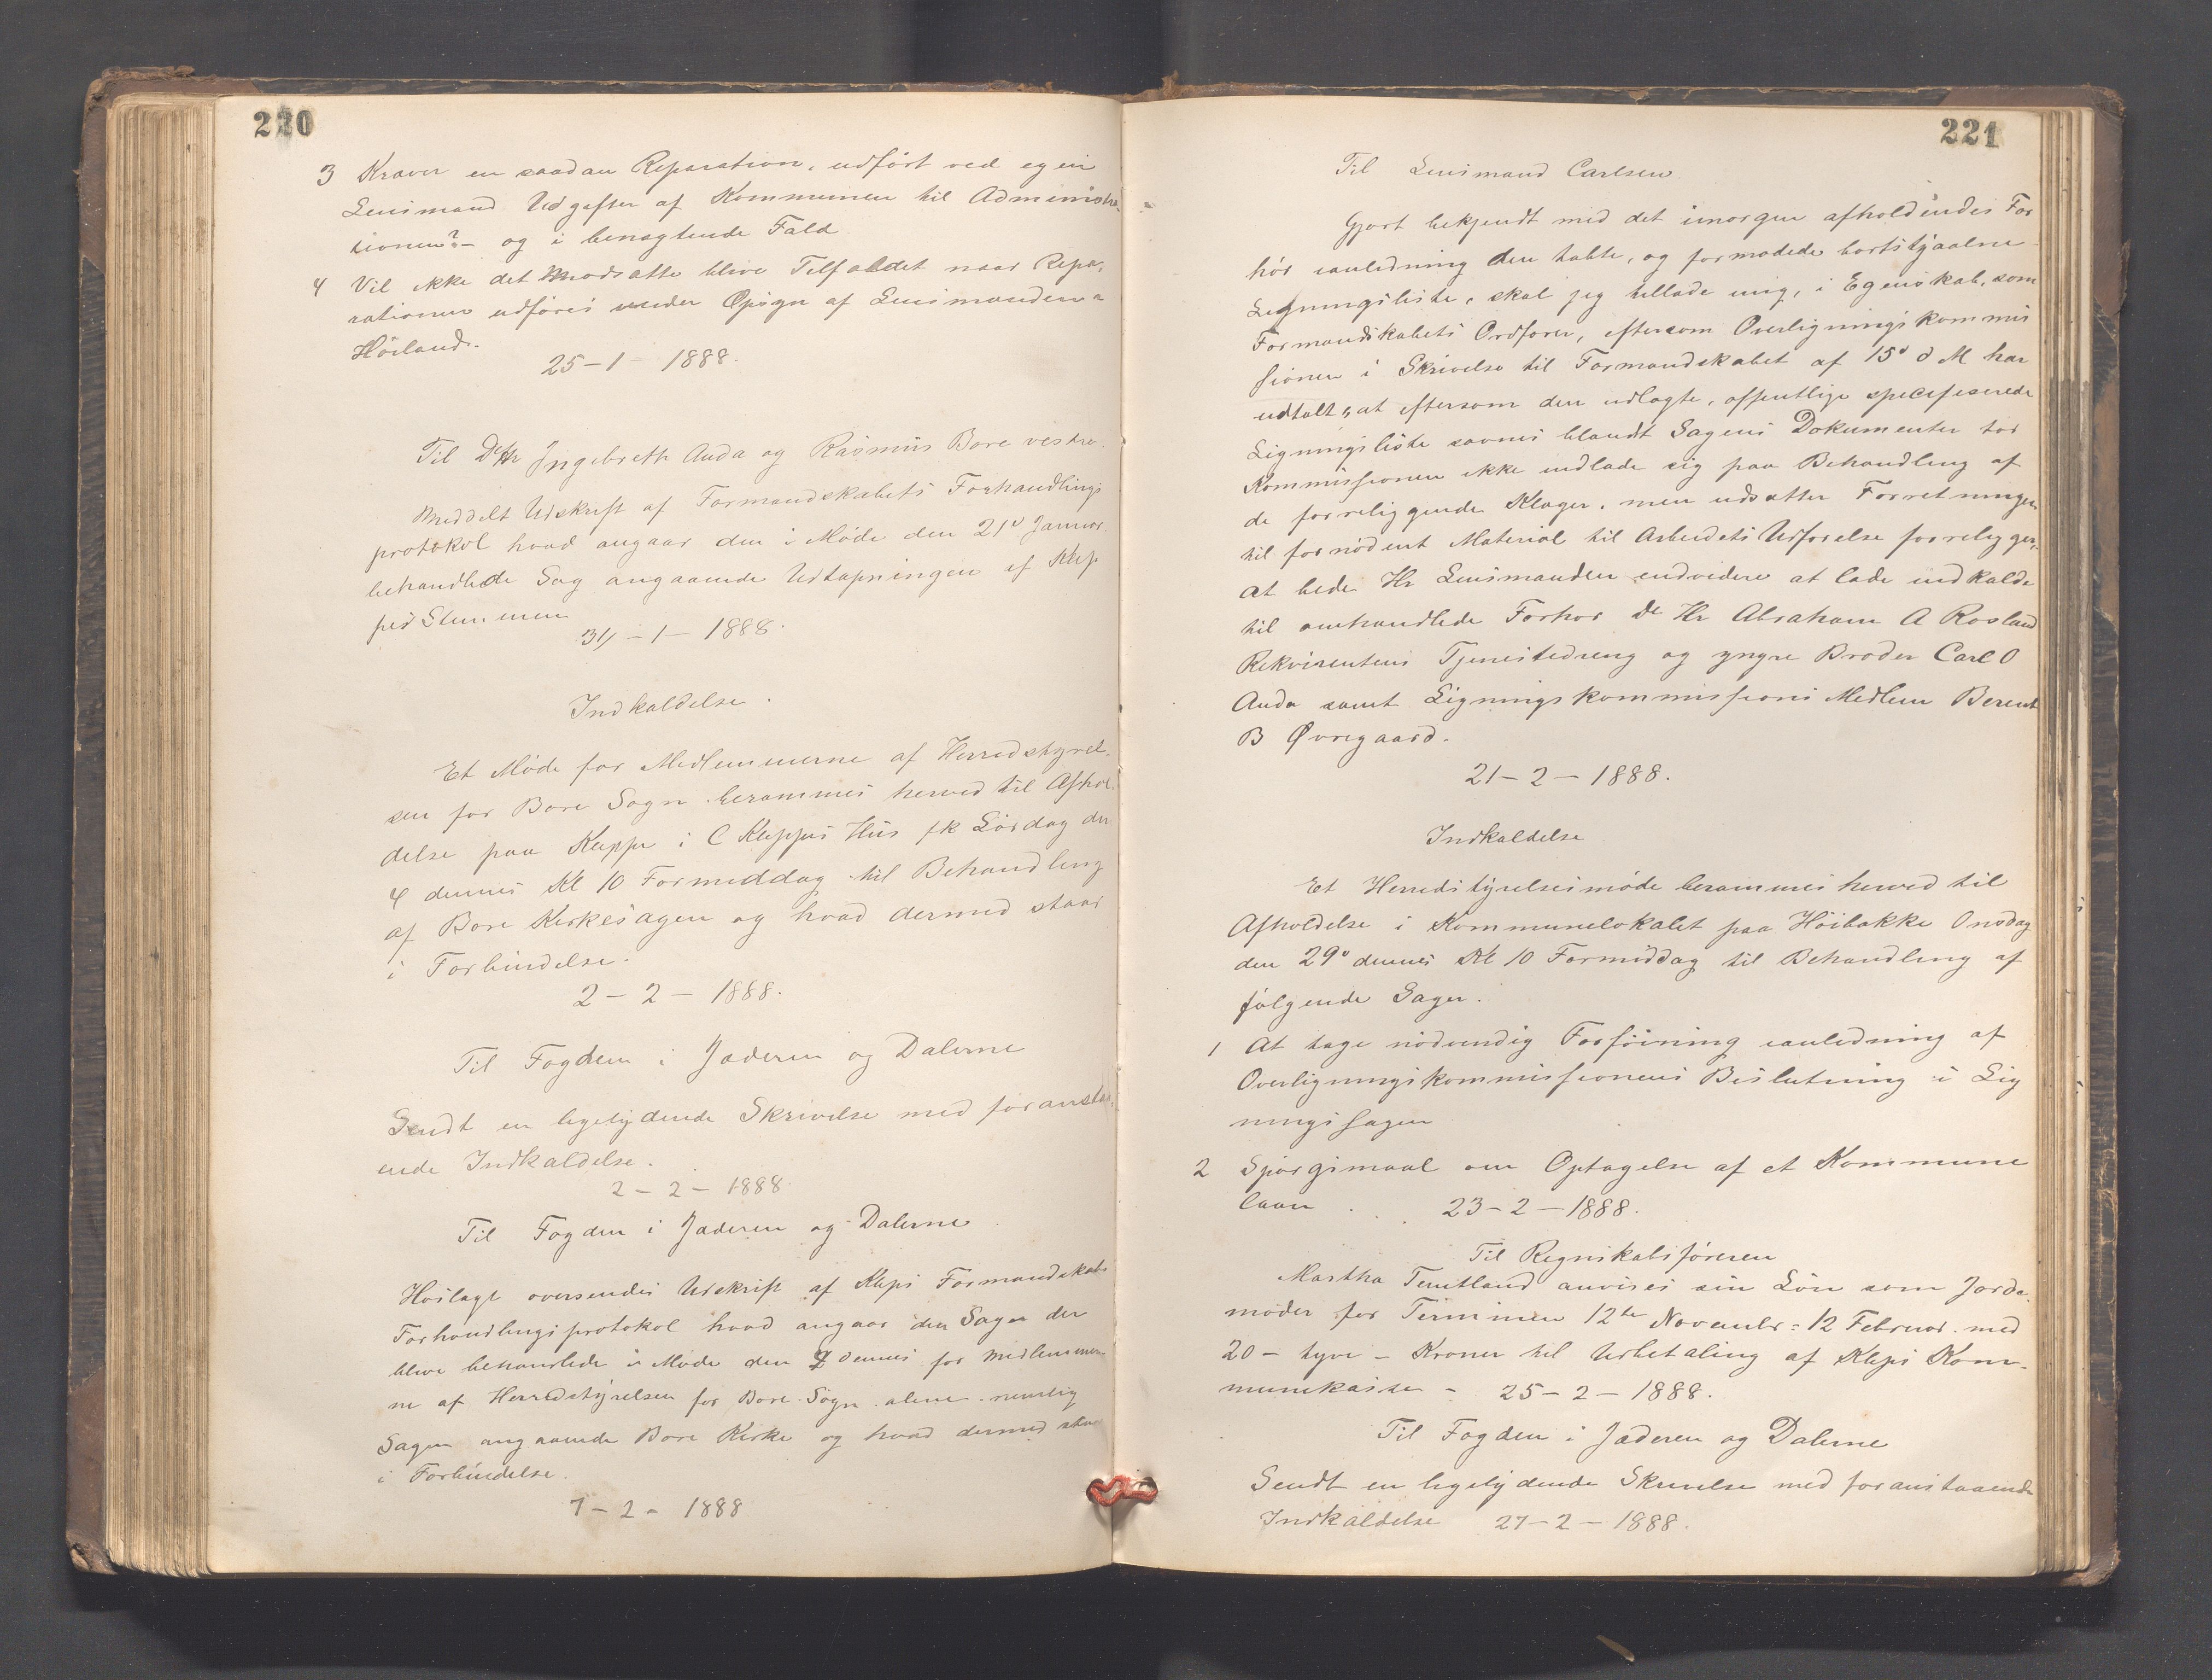 220
3 Kræver en saadan Reparation, udført ved egen
Lensmand Udgifter af Kommunen til Administra-
tionen? - og i benægtende Fald
4 Vil ikke det Modsatte blive Tilfældet naar Repa-
rationen udføres under Opsyn af Lensmanden i
Höiland.
25-1- 1888.
Til Dhr Ingebreth Anda og Rasmus Bore vestre.
Meddelt Udskrift af Formandskabets Forhandlings
protokol hvad angaar den i Møde den 21de Januar
behandlede Sag angaaende Udtapningen af Klep
pe Stemmen
31/-1- 1888.
Indkaldelse.
Et Møde for Medlemmerne af Herredstyrel-
sen for Bore Sogn berammes herved til Afhol-
delse paa Kleppe i C Kleppes Hus fk Lördag den
4 dennes Kl 10 Formiddag til Behandling
af Bore Kirkesagen og hvad dermed staar
i Forbindelse.
2-2- 1888.
Til Fogden i Jæderen og Dalerne
Sendt en ligelydende Skrivelse med foranstaa-
ende Indkaldelse.
2-2- 1888
Til Fogden i Jæderen og Dalerne
Hoslagt oversendes Udskrift af Kleps Formandskabs
Forhandlingsprotokol hvad angaar den Sag der
blive behandlede i Møde den dennes for Medlemmer-
ne af Herredstyrelsen for Bore Sogn alene nemlig
Sagen angaaende Bore Kirke og hvad dermed staar
i Forbindelse.
7-2- 1888
221
Til Lensmand Carlsen
Gjort bekjendt med det imorgen afholdendes For
hör ianledning den tabte, og formodede bortstjaalne
Ligningsliste, skal jeg tillade mig, i Egenskab, som
Formandskabets Ordfører, eftersom Overligningskommis
sionen i Skrivelse til Formandskabet af 15d d M har
udtalt "at eftersom den udlagte, offentlige specefiserede
Ligningsliste savnes blandt Sagens Dokumenter tør
Kommissionen ikke indlade sig paa Behandling af
de foreliggende Klager, men udsætter Forretningen
til fornödent Material til Arbeidets Udførelse foreligger"
at bede Hr Lensmanden endvidere at lade indkalde
til omhandlede Forhør De Hr Abraham A Rosland
Rekvirentens Tjenestedreng og yngre Broder Carl O
Anda samt Ligningskommissions Medlem Berent
B Øvregaard.
21-2- 1888.
Indkaldelse
Et Herredstyrelsesmöde berammes herved til
Afholdelse i Kommunelokalet paa Höibakke Onsdag
den 29d dennes Kl 10 Formiddag til Behandling af
følgende Sager.
1 At tage nödvendig Forföining ianledning af
Overligningskommissionens Beslutning i Lig
ningssagen
2 Spørgsmaal om Optagelse af et Kommune
laan
23-2-1888.
Til Regnskabsføreren
Martha Tentland anvises sin Lön som Jorde-
moder for Terminen 12te Novembr = 12 Februar. med
20 - tyve - Kroner til Udbetaling af Kleps Kom-
munekasse - 25-2-1888.
Til Fogden i Jæderen og Dalerne
Sendt en ligelydende Skrivelse med foranstaaende
Indkaldelse 27-2-1888.